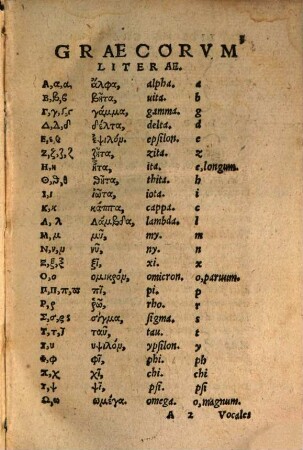 3
GRAECORVM
LITERAE.
Α,α,α ἄλφα, alpha. a
Β,β,ϐ βῆτα, uita. b
Γ,γ,ς γάμμα, gamma. g
Δ,δ,δ δ'έλτα, delta. d
Ε,ε,ε ἐψιλόμ, epsilon. e
Ζ,ζ,ζ,ξ ζῆτα, zita. z
Η,η ἦτα, ita. e,longum.
Θ,ϑ,θ θῆτα, thita. h
Ι,ι ἰῶτα, iota. i
Κ,κ κάππα, cappa. c
Λ,λ Λάμβδα, lambda. l
Μ,μ μῦ, my. m
Ν,ν,ν νῦ, ny. n
Ξ,ξ,ξ ξῖ, xi. x
Ο,ο ομικρόμ, omicron. o,paruum.
Π,Π,π,ϖ πῖ, pi. p
Ρ,ρ ῥῶ, rho. r
Σ,σ,ς σίγμα, sigma. s
Τ,τ,ῖ ταῦ, tau. t
Υ,υ υψιλόμ, ypsilon. y
Φ,φ φῖ, phi. ph
Χ,χ χῖ, chi. ch
Ψ,ψ ψῖ, psi. psi
Ω,ω ωμέγα. omega. o,magnum.
A 2 Vocales